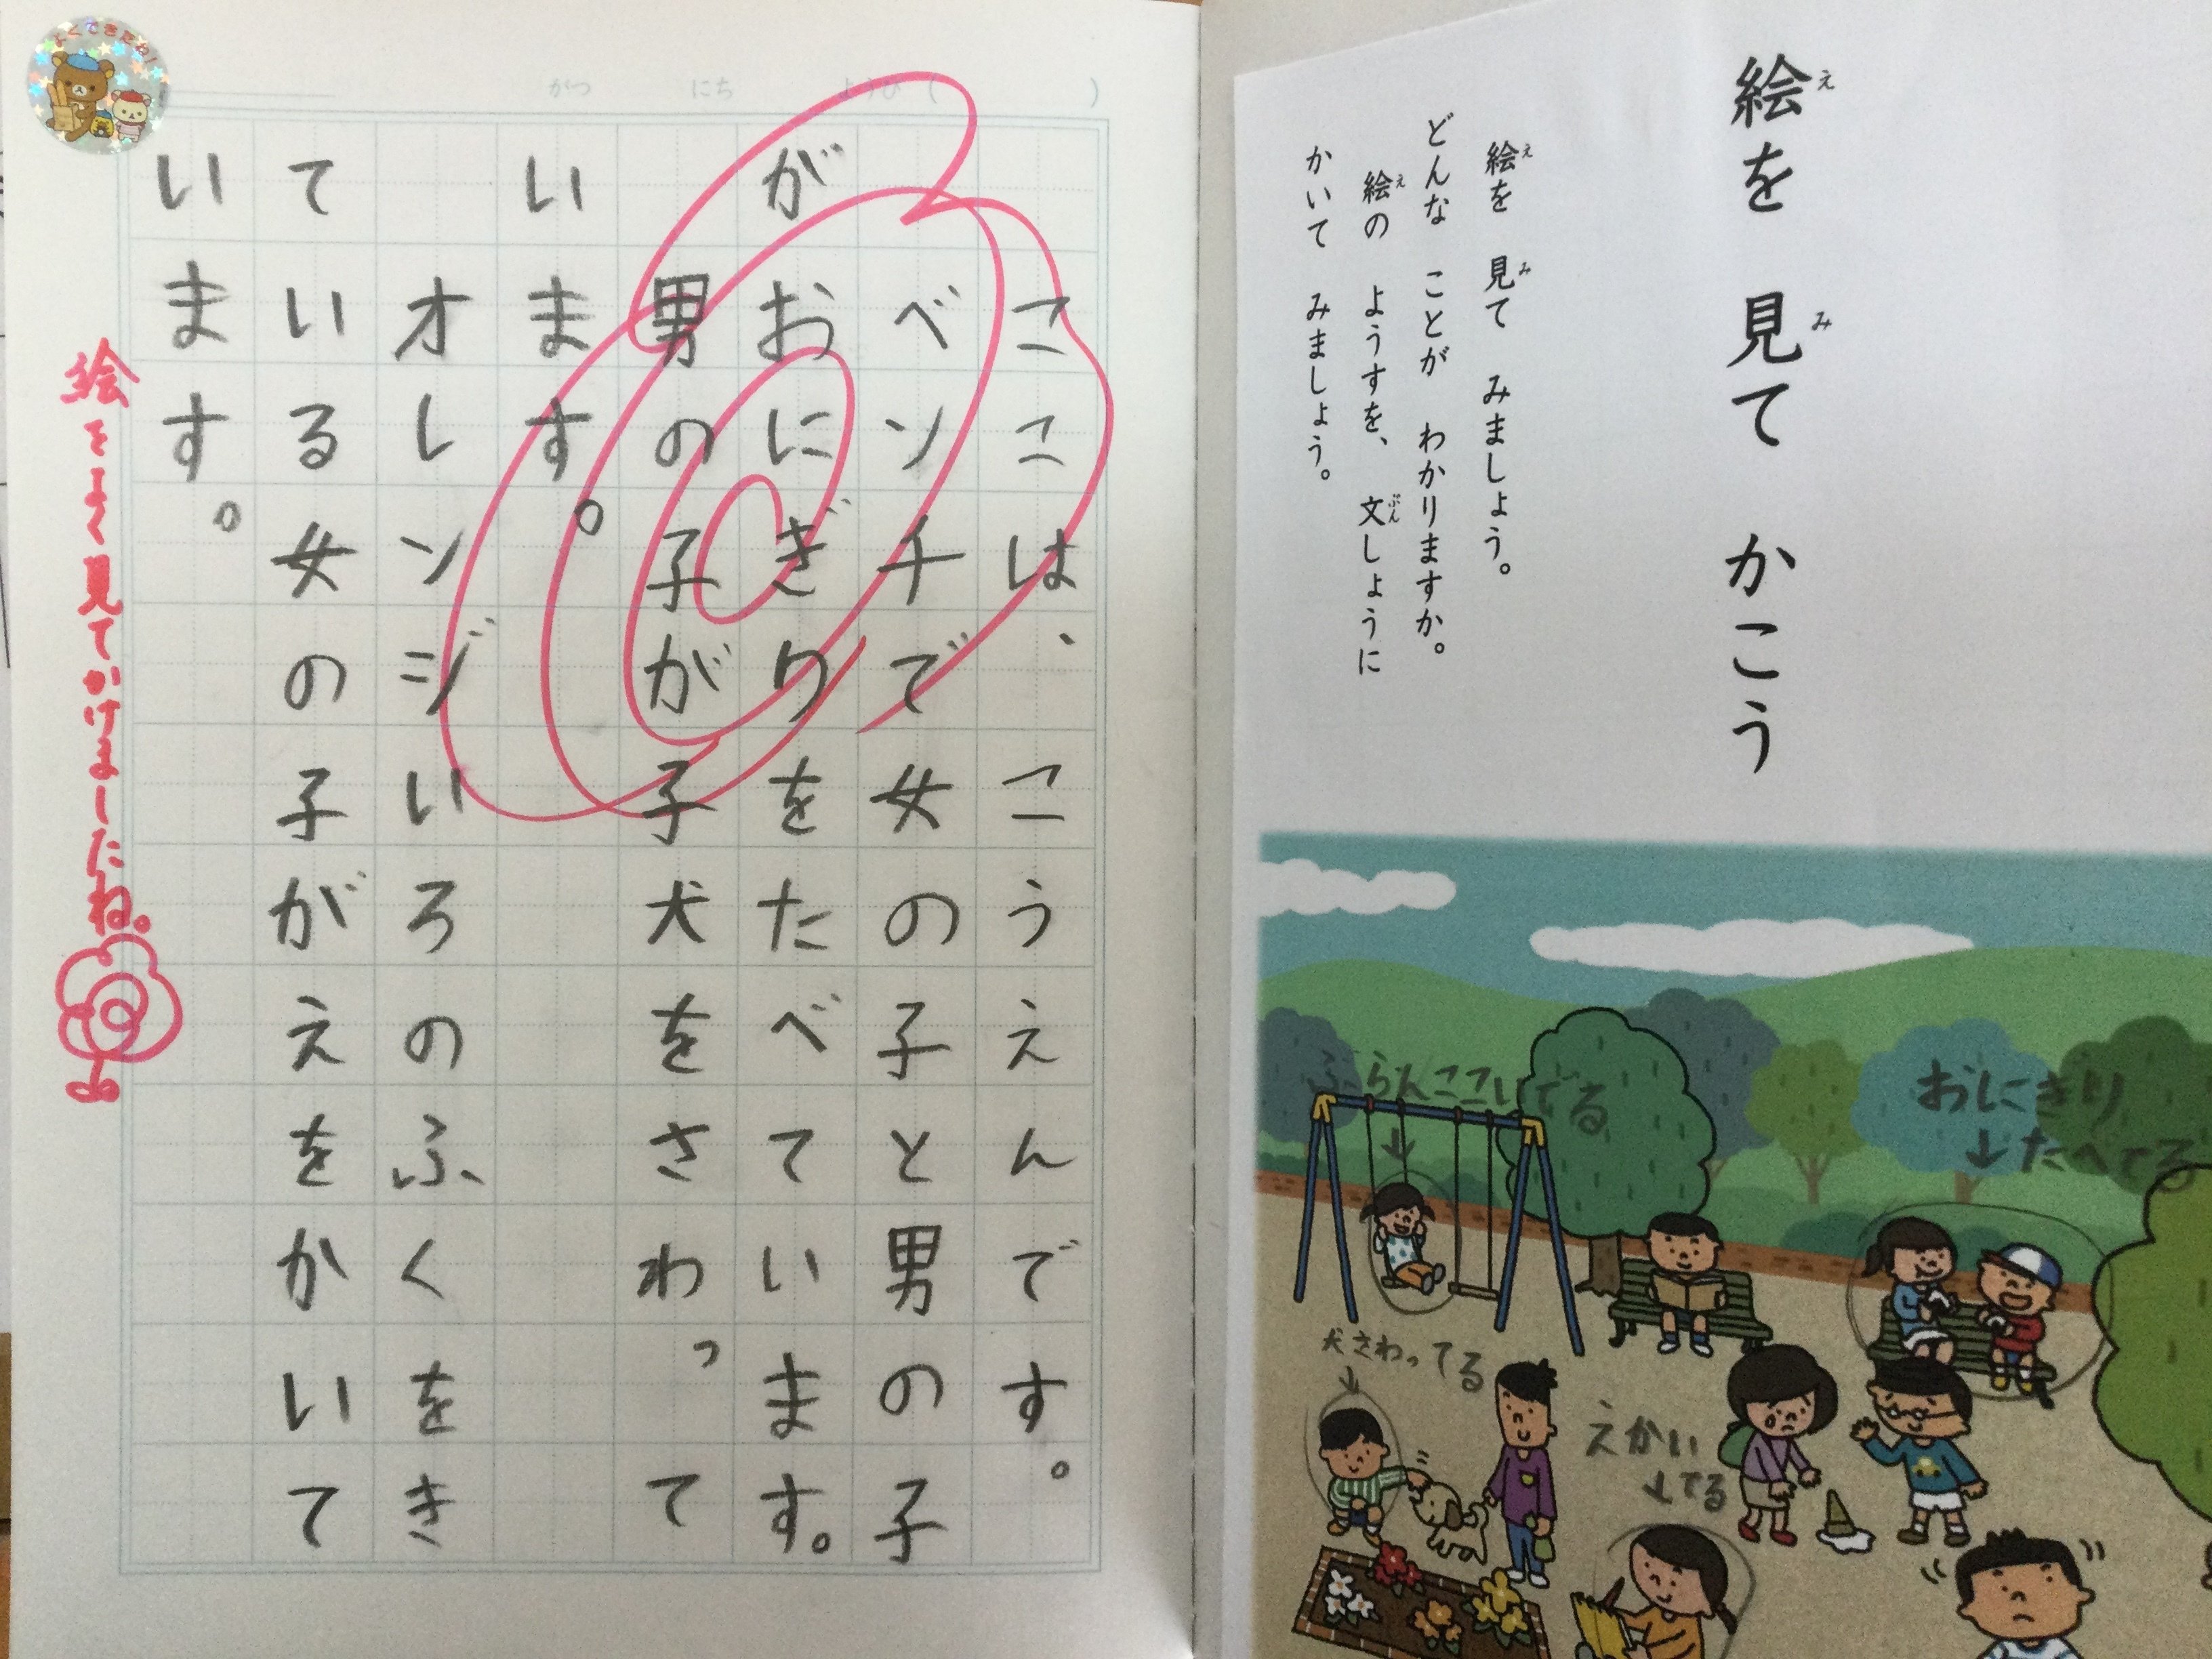 絵を 見て かこう
絵を 見て みましょう。
どんな ことが わかりますか。
絵の ようすを、 文しょうに
かいて みましょう。
ぶらんここいでる
おにぎり
たべてる
犬さわってる
えかい
てる
がつ にち ようび ( )
ここは、こうえんです。
ベンチで女の子と男の子
がおにぎりをたべています。
男の子が子犬をさわって
います。
オレンジいろのふくをき
ている女の子がえをかいて
います。
絵をよく見てかけましたね。
よくできたね!